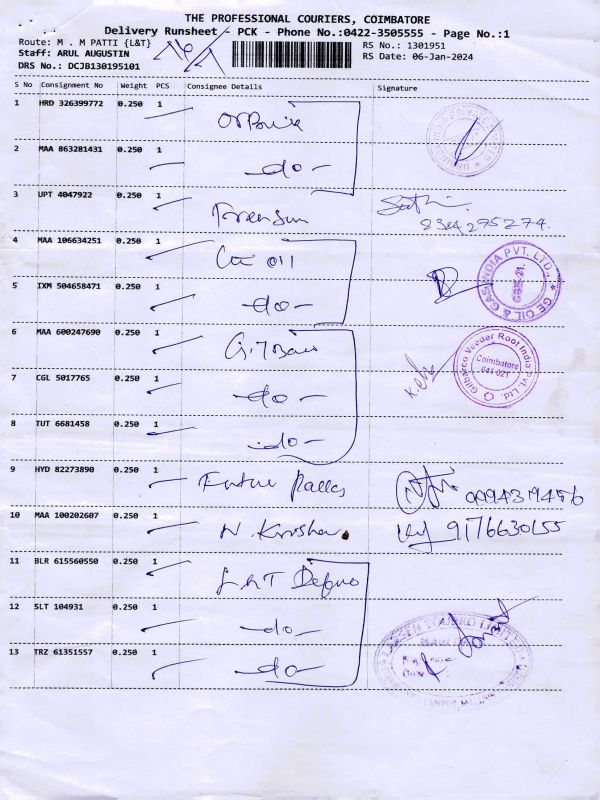 THE PROFESSIONAL COURIERS, COIMBATORE
Delivery Runsheet - PCK - Phone No.:0422-3505555 - Page No.:1
Route: M . M PATTI {L&T}
RS No.: 1301951
Staff: ARUL AUGUSTIN
RS Date: 06-Jan-2024
DRS No.: DCJB130195101
S No Consignment No Weight PCS Consignee Details Signature
1 HRD 326399772 0.250 1
2 MAA 863281431 0.250 1
-do-
3 UPT 4047922 0.250 1
8344275274.
4 MAA 106634251 0.250 1
Ge oil
GE OIL & GAS INDIA PVT. LTD.
5 IXM 504658671 0.250 1
-do-
6 MAA 600247690 0.250 1
Gilbarco Veeder Root India Pvt. Ltd.
Coimbatore
641 021
7 CGL 5017765 0.250 1
-do-
8 TUT 6681458 0.250 1
-do-
9 HYD 82273890 0.250 1
Future
10 MAA 100202607 0.250 1
N. Krishna
9176630155
11 BLR 615560550 0.250 1
L&T Defence
12 SLT 104931 0.250 1
-do-
13 TRZ 61351557 0.250 1
-do-